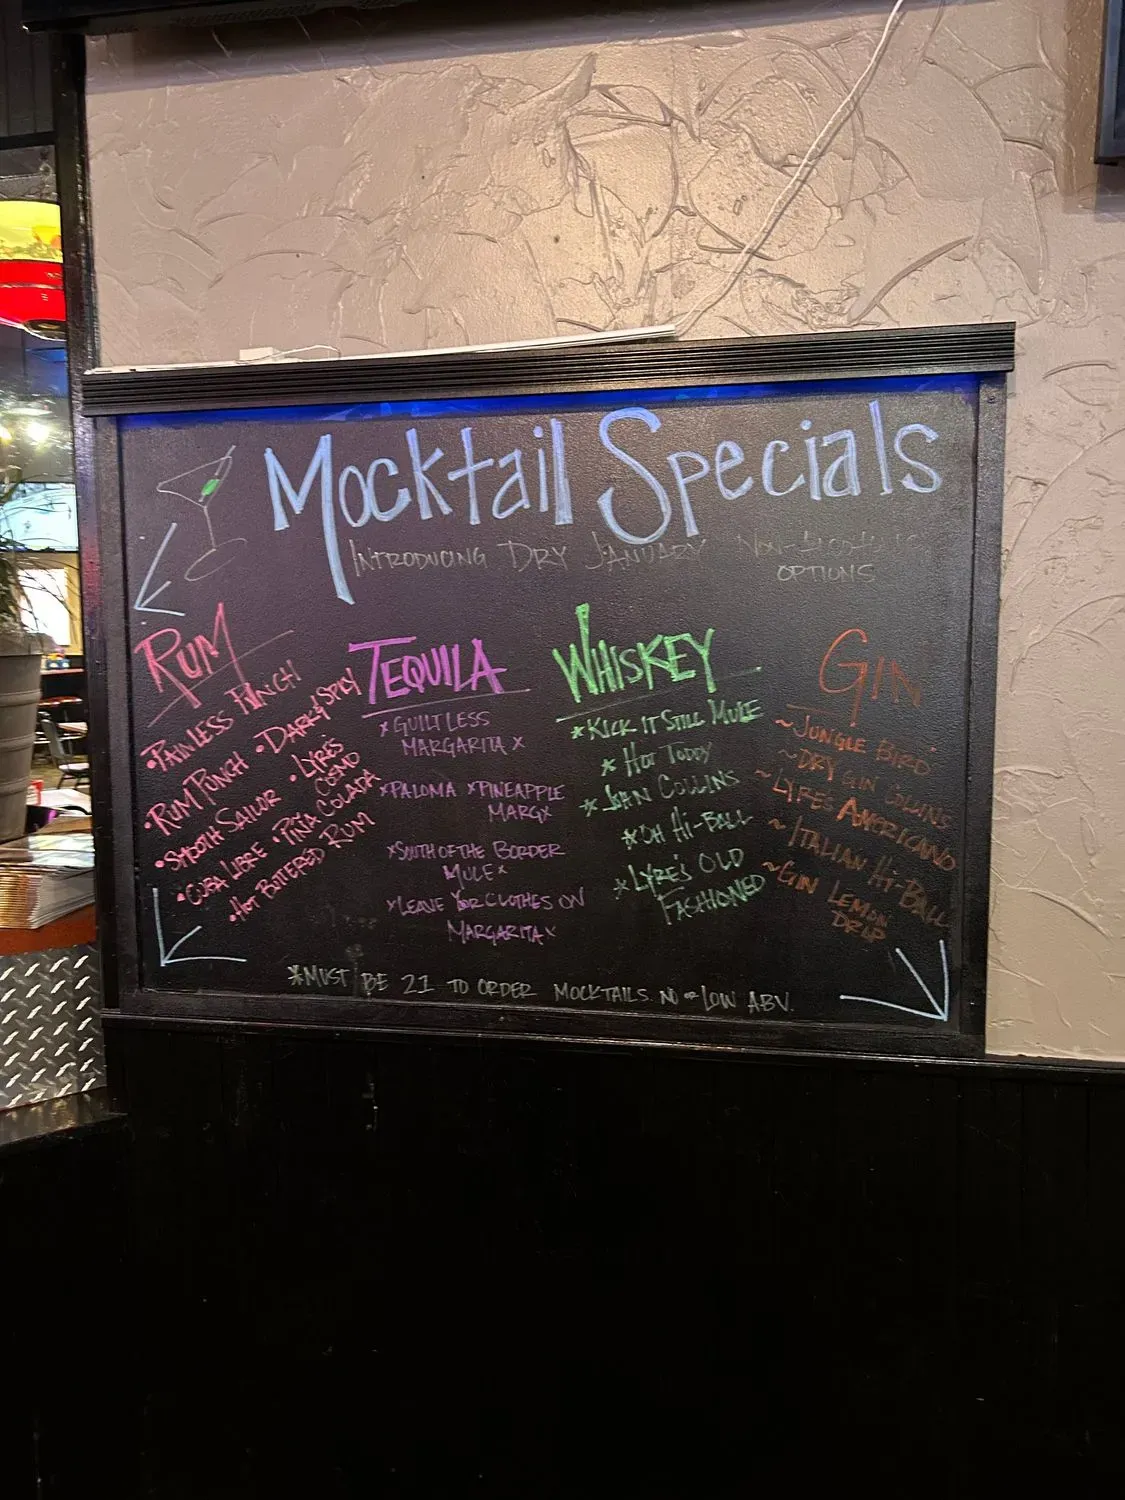 Mocktail Specials
INTRODUCING DRY JANUARY NON-ALCOHOLIC
OPTIONS
RUM
•PAINLESS PUNCH
•RUM PUNCH •DARK & SPICY
•SMOOTH SAILOR •LYRE'S
COSMO
•CUBA LIBRE •PIÑA COLADA
•HOT BUTTERED RUM
TEQUILA
*GUILTLESS
MARGARITA*
*PALOMA *PINEAPPLE
MARG*
*SOUTH OF THE BORDER
MULE*
*LEAVE YOUR CLOTHES ON
MARGARITA*
WHISKEY
*KICK IT STILL MULE
*HOT TODDY
* COLLINS
*OH HI-BALL
*LYRE'S OLD
FASHIONED
GIN
~JUNGLE BIRD
~DRY GIN COLLINS
~LYRE'S AMERICANO
~ITALIAN HI-BALL
~GIN LEMON
DROP
*MUST BE 21 TO ORDER MOCKTAILS. NO OR LOW ABV.